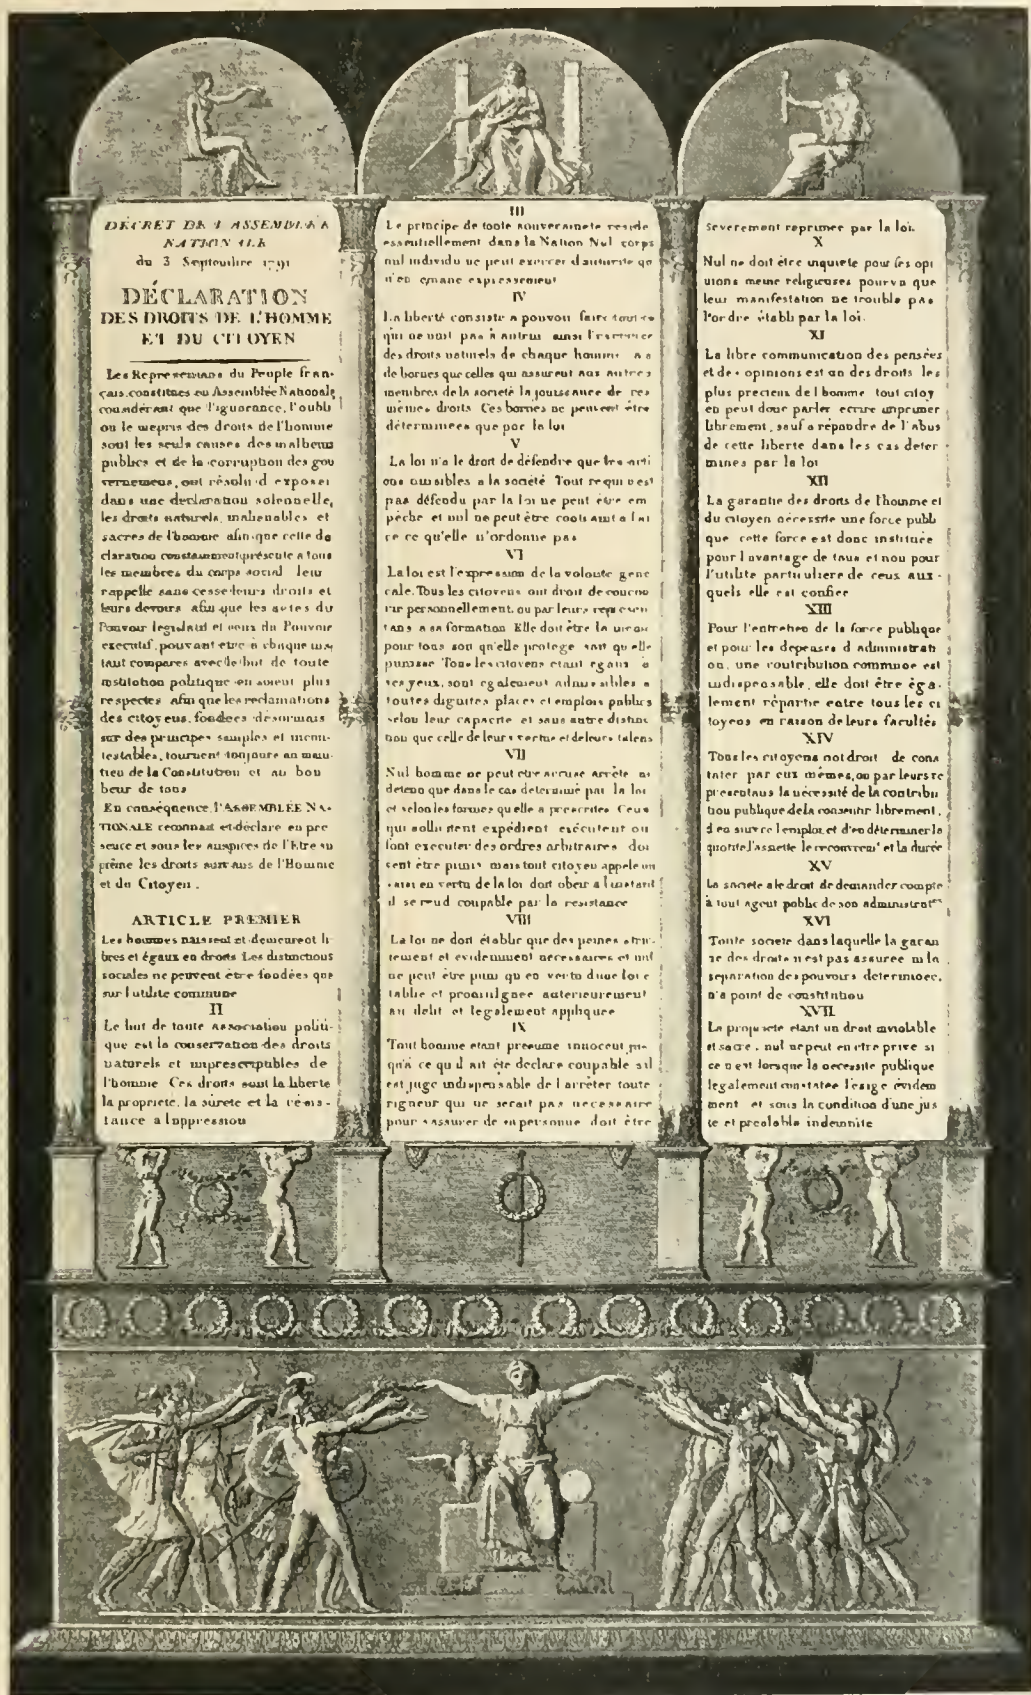 DÉCRET DE L'ASSEMBLÉE
NATIONALE
du 3 Septembre 1791
DÉCLARATION
DES DROITS DE L'HOMME
ET DU CITOYEN
Les Representans du Peuple fran-
çais, constitues en Assemblée Nationale,
considérant que l'ignorance, l'oubli
ou le mepris des droits de l'homme
sont les seuls causes des malheurs
publics et de la corruption des gou
vernemens, ont résolu d exposer
dans une declaration solennelle,
les droits naturels, inalienables et
sacres de l'homme afin que cette de
claration constamment présente a tous
les membres du corps social leur
rappelle sans cesse leurs droits et
leurs devoirs afin que les actes du
Pouvoir legislatif et ceux du Pouvoir
executif, pouvant etre a chaque ins
tant compares avec le but de toute
institution politique en soient plus
respectes afin que les reclamations
des citoyens, fondees désormais
sur des principes simples et incon
testables, tournent toujours au main
tien de la Constitution et au bon
heur de tous
En conséquence, l'ASSEMBLÉE NA-
TIONALE reconnait et déclare en pre
sence et sous les auspices de l'Etre su
prême les droits suivans de l'Homme
et du Citoyen.
ARTICLE PREMIER
Les hommes naissent et demeurent li
bres et égaux en droits Les distinctions
sociales ne peuvent être fondées que
sur l utilite commune
II
Le but de toute association politi-
que est la conservation des droits
naturels et imprescriptibles de
l'homme Ces droits sont la liberte
la propriete, la sûrete et la résis-
tance a l oppression
III
Le principe de toute souverainete reside
essentiellement dans la Nation Nul corps
nul individu ne peut exercer d autorite qu
n'en emane expressement
IV
La liberté consiste a pouvoir faire tout ce
qui ne nuit pas à autrui ainsi l'exercice
des droits naturels de chaque homme n a
de bornes que celles qui assurent aux autres
membres de la societé la jouissance de ces
mêmes droits Ces bornes ne peuvent être
déterminées que par la loi
V
La loi n'a le droit de défendre que les acti
ons nuisibles a la société Tout ce qui n'est
pas défendu par la loi ne peut être em
pêche et nul ne peut être contraint a fai
re ce qu'elle n'ordonne pas
VI
La loi est l'expression de la volonte gene
rale. Tous les citoyens ont droit de concou
rir personnellement, ou par leurs represen
tans a sa formation Elle doit être la meme
pour tous soit qu'elle protege soit qu elle
punisse Tous les citoyens etant egaux a
ses yeux, sont egalement admissibles a
toutes dignites places et emplois publics
selon leur capacite et sans autre distinc
tion que celle de leurs vertus et de leurs talens
VII
Nul homme ne peut etre accuse arrête ni
detenu que dans le cas determine par la loi
et selon les formes qu elle a prescrites Ceux
qui sollicitent expédient exécutent ou
font executer des ordres arbitraires doi
vent être punis mais tout citoyen appele ou
saisi en vertu de la loi doit obeir a l instant
il se rend coupable par la resistance
VIII
La loi ne doit établir que des peines stric
tement et evidemment necessaires et nul
ne peut être puni qu en vertu d une loi e
tablie et promulgnee anterieurement
au delit et legalement appliquee
IX
Tout homme etant presume innocent jus-
qu'a ce qu il ait été declare coupable s il
est juge indispensable de l arrêter toute
rigueur qui ne serait pas necessaire
pour s assurer de sa personne doit être
severement reprimer par la loi.
X
Nul ne doit être inquiete pour ses opi
nions meme religieuses pourvu que
leur manifestation ne trouble pas
l'ordre établi par la loi.
XI
La libre communication des pensées
et des opinions est un des droits les
plus precieux de l homme tout citoy
en peut donc parler ecrire imprimer
librement, sauf a répondre de l'abus
de cette liberte dans les cas deter
mines par la loi
XII
La garantie des droits de l'homme et
du citoyen necessite une force publi
que cette force est donc instituée
pour l avantage de tous et non pour
l'utilite particuliere de ceux aux-
quels elle est confier
XIII
Pour l'entretien de la force publique
et pour les depenses d administrati
on, une contribution commune est
indispensable, elle doit être éga-
lement répartie entre tous les ci
toyens en raison de leurs facultés
XIV
Tous les citoyens ont droit de cons
tater par eux mêmes, ou par leurs re
presentans la nécessité de la contribu
tion publique de la consentir librement,
d en suivre l emploi et d'en déterminer la
quotite l'assiette le recouvremt et la durée
XV
La societe a le droit de demander compte
à tout agent public de son administraton
XVI
Toute societe dans laquelle la garan
tie des droits n est pas assuree ni la
separation des pouvoirs determinee,
n'a point de constitution
XVII
La propriete etant un droit inviolable
et sacre, nul ne peut en etre prive si
ce n est lorsque la necessite publique
legalement constatee l'exige évidem
ment et sous la condition d'une jus
te et prealable indemnite